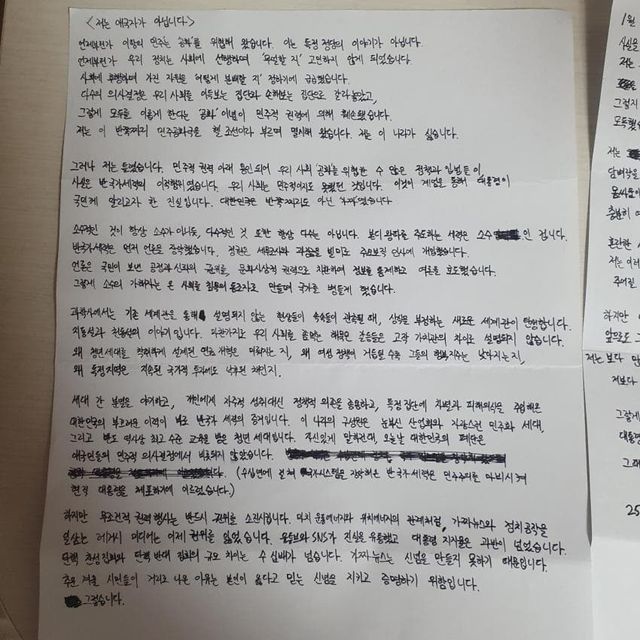 〈저는 애국자가 아닙니다〉
언제부턴가 이 땅의 민주는 '공화'를 위협해 왔습니다. 이는 특정 정당의 이야기가 아닙니다.
언제부턴가 우리 정치는 사회에 선행하며 '무엇할 지' 고민하지 않게 되었습니다.
사회에 후행하며 가진 자원을 '어떻게 분배할 지' 정하기에 급급했습니다.
다수의 의사결정은 우리 사회를 이득보는 집단과 손해보는 집단으로 갈라놓았고,
그렇게 모두를 이롭게 한다는 '공화' 이념이 민주적 권력에 의해 훼손됐습니다.
저는 이 반쪽짜리 민주공화국을 헬조선이라 부르며 멸시해 왔습니다. 저는 이 나라가 싫습니다.
그러나 저는 틀렸습니다. 민주적 권력 아래 용인되어 우리 사회 공화를 위협한 수 많은 정책과 입법들이
사실은 반국가세력의 이적행위였습니다. 우리 사회는 민주적이지도 못했던 것입니다. 이것이 계엄을 통해 대통령이
국민께 알리고자 한 진실입니다. 대한민국은 반쪽짜리도 아닌
소수적인 것이 항상 소수가 아니듯, 다수적인 것 또한 항상 다수는 아닙니다. 본디 왕좌를 주도하는 세력은 소수 인 겁니다.
반국가세력은 먼저 언론을 장악했습니다. 정권은 세무조사와 과징금을 빌미로 주요보직 인사에 개입했습니다.
언론은 국민이 보낸 공정과 신뢰의 권위를, 문화사상적 권력으로 치환하여 정보를 통제하고 여론을 호도했습니다.
그렇게 소수의 가해자는 온 사회를 침묵의 동조자로 만들며 국가를 병들게 했습니다.
과학사에서는 기존 세계관을 통해 설명되지 않는 현상들이 속속들이 관측될 때, 상식을 부정하는 새로운 세계관이 탄생합니다.
지동설과 천동설의 이야기입니다. 마찬가지로 우리 사회를 좀먹던 해묵은 갈등들은 고작 가치관의 차이로 설명되지 않습니다.
왜 청년세대를 착취하게 설계된 연금 개혁은 미뤄지는 지, 왜 여성 정책이 거듭될 수록 그들의 행복지수는 낮아지는지,
왜 특정지역은 지속된 국가적 투자에도 낙후된 채인지.
세대 간 분열을 야기하고, 개인에게 자주적 성취대신 정책적 의존을 종용하고, 특정 집단에 차별과 피해의식을 주입해온
대한민국의 부끄러운 이력이 바로 반국가 세력의 증거입니다. 이 나라의 구성원은 눈부신 산업화와 자랑스런 민주화 세대,
그리고 반도 역사상 최고 수준 교육을 받은 청년 세대입니다. 자신있게 말하건대, 오늘날 대한민국의 폐단은
애국민들의 민주적 의사결정에서 비롯되지 않았습니다.
(수십년에 걸쳐 국가시스템을 장악해온 반국가세력은 민주주의를 마비시켜
현직 대통령을 체포하기에 이르렀습니다.)
하지만 무조건적 권력 행사는 반드시 권위를 소진시킵니다. 마치 운동에너지와 위치에너지의 관계처럼, 가짜뉴스와 정치공작을
일삼는 레거시 미디어는 이제 권위를 잃었습니다. 유튜브와 SNS가 진실을 유통했고 대통령 지지율은 과반이 넘었습니다.
탄핵 찬성집회와 탄핵 반대 집회의 규모 차이는 수 십배가 넘습니다. 가짜뉴스는 신념을 만들지 못하기 때문입니다.
추운 겨울 시민들이 거리로 나온 이유는 본인이 옳다고 믿는 신념을 지키고 증명하기 위함입니다.
그렇습니다.
1월
사실은
저는
그렇지
모두
충분히
혼란한
저는 이
주어진
하지만
저는 보다
저보다
그렇게
대통령
그래
25